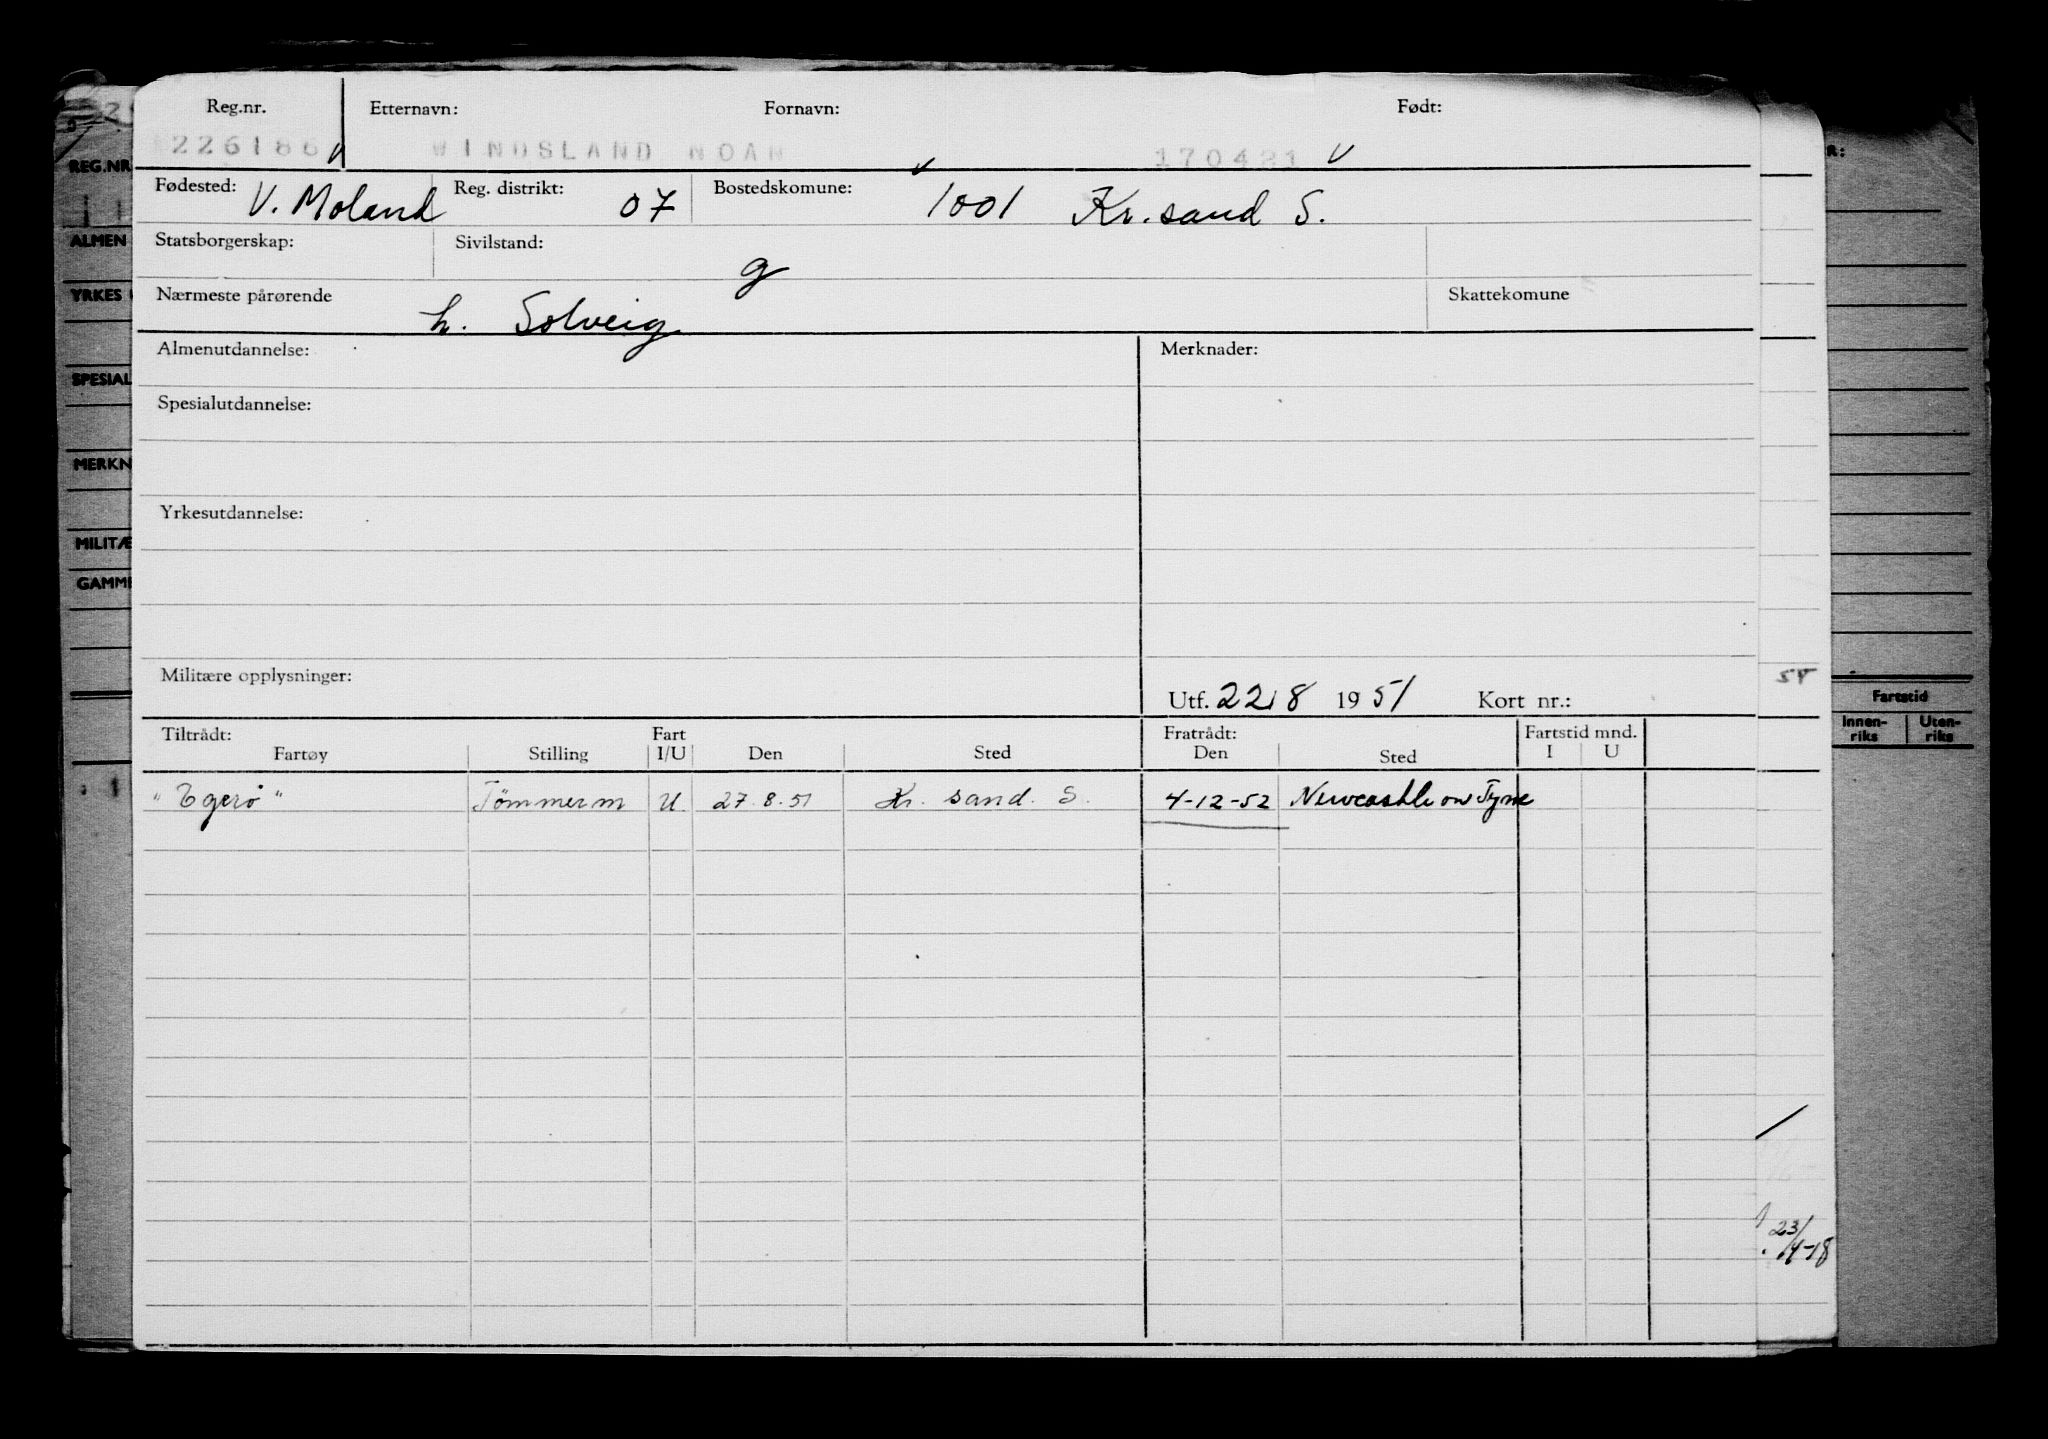 Reg.nr. Etternavn: Fornavn: Født:
226186 WINDSLAND NOAH 170421
Fødested: V. Moland Reg. distrikt: 07 Bostedskomune: 1001 Kr.sand S.
Statsborgerskap: Sivilstand: g
Nærmeste pårørende h. Solveig Skattekomune
Almenutdannelse: Merknader:
Spesialutdannelse:
Yrkesutdannelse:
Militære opplysninger:
Utf. 22/8 1951 Kort nr.:
Tiltrådt: Fart Fratrådt: Fartstid mnd.
Fartøy Stilling I/U Den Sted Den Sted I U
"Egerö" Tömmerm U. 27.8.51 Kr. sand. S. 4-12-52 Newcastle on Tyne
REG.NR
ALMEN
YRKES
SPESIAL
MERKN
MILITÆ
GAMME
R:
58
Fartstid
Innen-riks Uten-riks
23/4-18